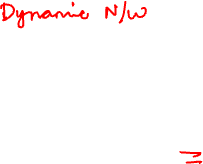 Dynamic N/W